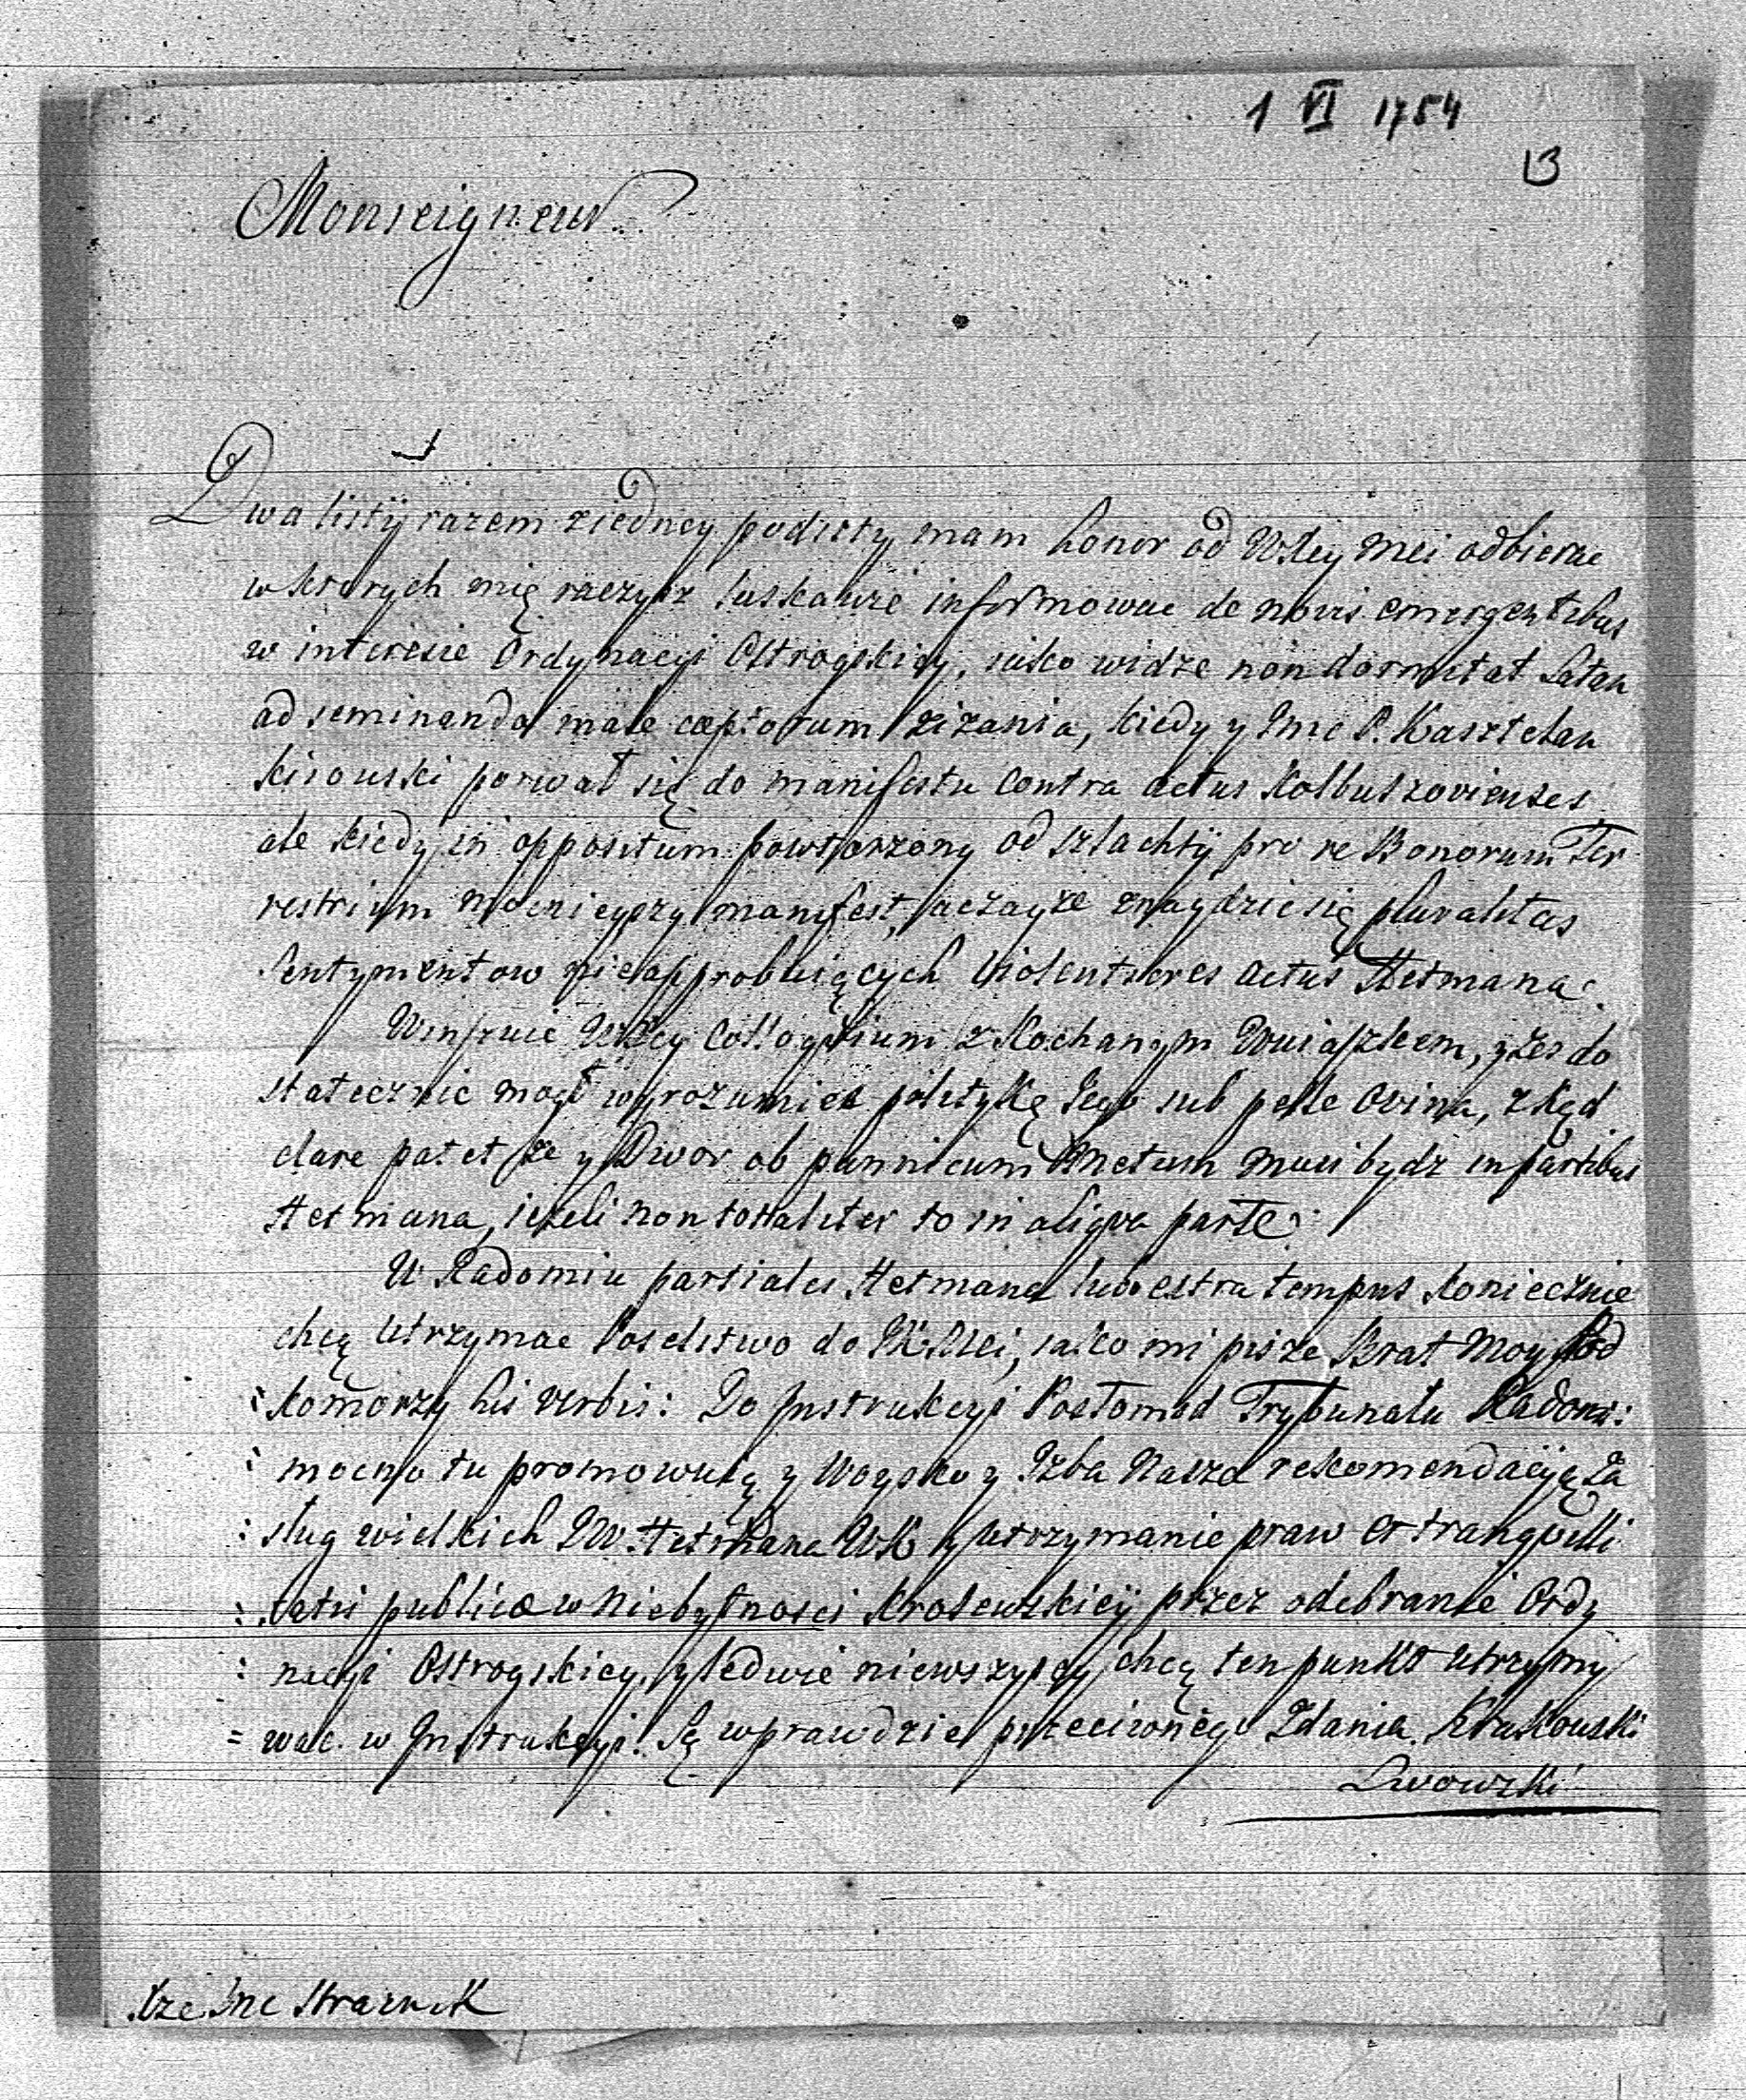 1 VI 1754
13
Monseigneur
Dwa listy razem ziedney poczty mam honor od WXcy Mci odbierac
w ktorych mię raczysz łaskawie informowac de novis emergentibus
w interesie Ordynacyi Ostrogskiey, iako widzę non dormitat Satan
ad seminanda male cæptorum zizania, kiedy y Imc P. Kasztelan
kiiouski porwał się do manifestu contra actus Kolbuszovienses
ale kiedy in oppositum powtorzony od szlachty pro re Bonorum Ter
restrium mocnieyszy manifest, aczayże znaydzie się pluralitas
Sentymentow nieapprobuiących violentiores actus Hetmana.
Winszuię WXcy Colloquium z Kochanym Wuiaszkem, yżes do
statecznie mogł wyrozumiec politykę Jego sub pelle ovina, zkąd
clare patet że y Dwor ob pannicum metum musi bydz in partibus
Hetmana, ieżeli non totaliter to in aliqva parte.
W Radomiu partiales Hetmana lubo extra tempus koniecznie
chcą utrzymac Poselstwo do JKMci, iako mi pisze Brat moy Pod
komorzy his verbis: Do Instrukcyi Posłom od Trybunału Radom:
mocno tu promowuią y Woysko y Izba Nasza rekomendacyią Za
sług wielkich JW Hetmana WK y utrzymanie praw et tranqvilli
tatis publicæ w niebytnosci Krolewskiey przez odebranie Ordy
nacyi Ostrogskiey, y ledwie niewszyscy chcą ten punkt utrzymy
wac w Instrukcyi. Są wprawdzie przeciwnego Zdania Krakouski
Lwowski
Xże Imc Strażnik